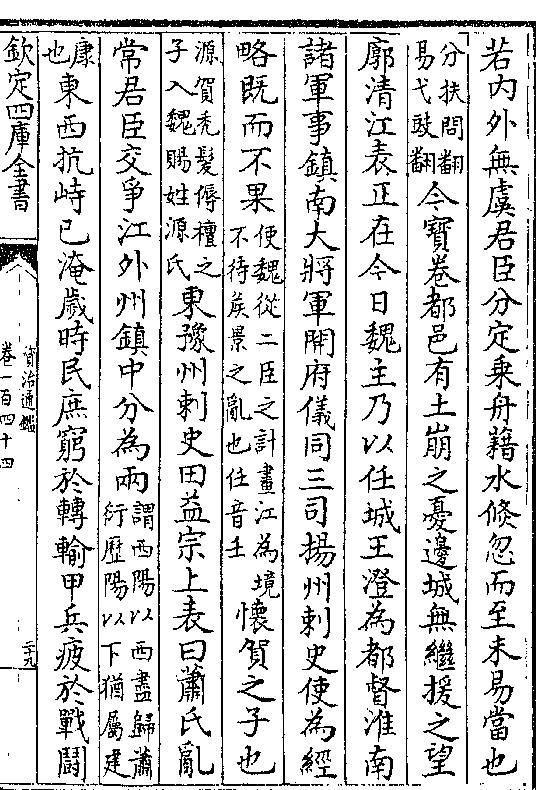 若内外無虞君臣分定乗舟藉水倐忽而至未易當也
分扶問翻
易弋䜴翻
今寶卷都邑有土崩之憂邊城無繼援之望
廓清江表正在今日魏主乃以任城王澄為都督淮南
諸軍事鎮南大將軍開府儀同三司揚州刺史使為經
略既而不果
使魏從二臣之計畫江為境
不待侯景之亂也任音壬
懷賀之子也
源賀禿髮傉檀之
子入魏賜姓源氏
東豫州刺史田益宗上表曰蕭氏亂
常君臣交爭江外州鎮中分為兩
謂西陽以西盡歸蕭
衍歷陽以下猶屬建
康
也
東西抗峙已淹歲時民庶窮於轉輸甲兵疲於戰鬪
欽定四庫全書
資治通鑑
卷一百四十四
二十九